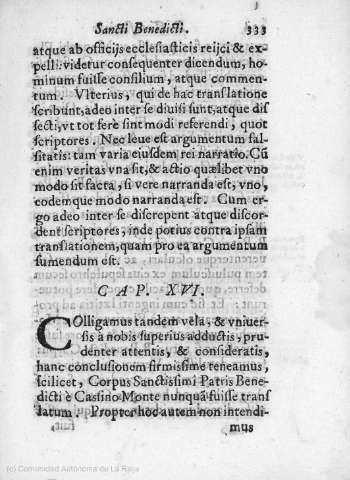 Sancti Benedicti. 333
atque ab officijs ecclesiasticis reijci & ex-
pelli: videtur consequenter dicendum, ho-
minum fuisse consilium, atque commen-
tum. Vlterius, qui de hac translatione
scribunt, adeo inter se diuisi sunt, atque dis
secti, vt tot ferè sint modi referendi, quot
scriptores. Nec leue est argumentum fal-
sitatis: tam varia eiusdem rei narratio. Cũ
enim veritas vna sit, & actio quælibet vno
modo sit facta, si vere narranda est, vno,
eodemque modo narranda est. Cum er-
go adeo inter se discrepent atque discor-
dent scriptores, inde potius contra ipsam
translationem, quam pro ea argumentum
sumendum est.
CAP. XVI.
COlligamus tandem vela, & vniuer-
sis a nobis superius adductis, pru-
denter attentis, & consideratis,
hanc conclusionem firmissime teneamus,
scilicet, Corpus Sanctissimi Patris Bene-
dicti è Cassino Monte nunquã fuisse trans
latum. Propter hoc autem non intendi-
mus
(c) Comunidad Autónoma de La Rioja